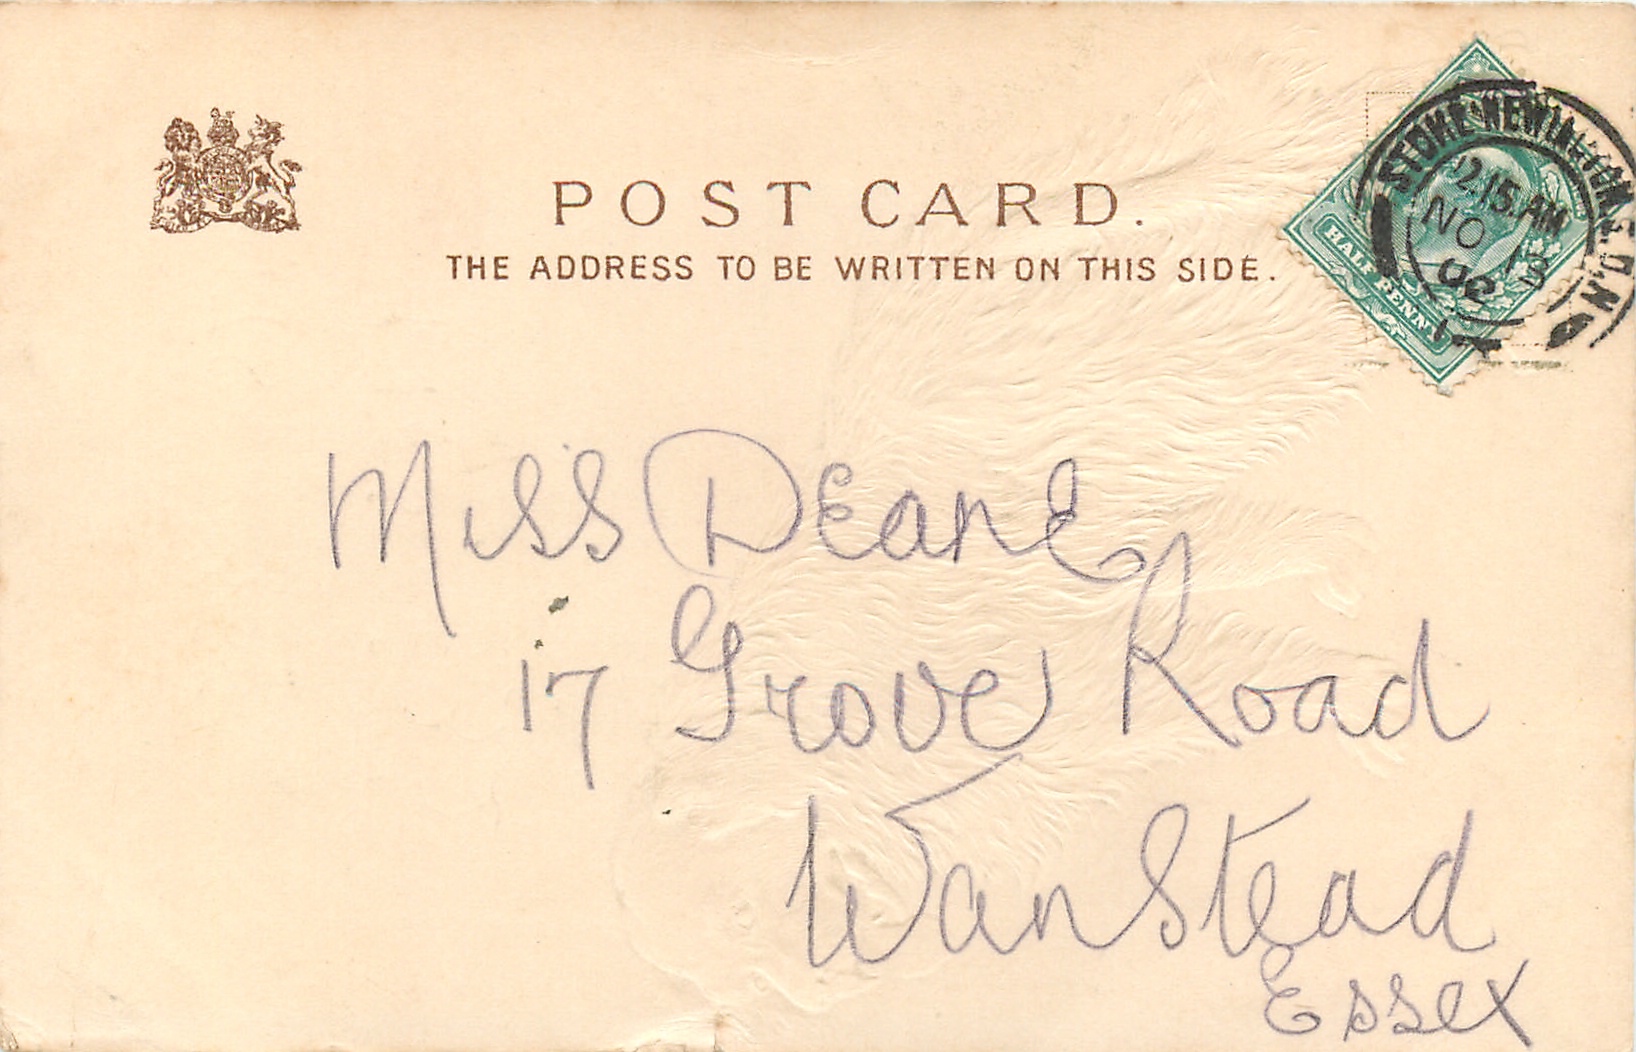 POST CARD.
THE ADDRESS TO BE WRITTEN ON THIS SIDE.
STOKE NEWINGTON S.O.N
12.15.AM
NO 13
02
HALF PENNY
Miss Deane
17 Grove Road
Wanstead
Essex